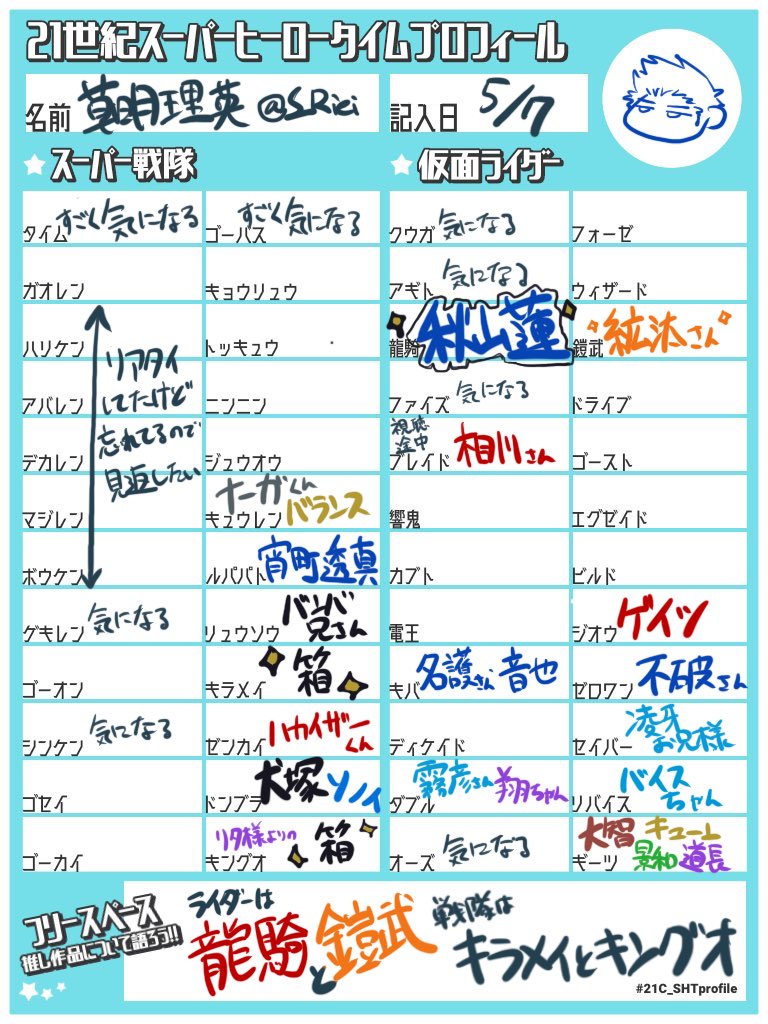 21世紀スーパーヒーロータイムプロフィール
名前 真明理英 @SRici
記入日 5/7
スーパー戦隊
仮面ライダー
タイム すごく気になる
ゴーバス すごく気になる
クウガ 気になる
フォーゼ
ガオレン
キョウリュウ
アギト 気になる
ウィザード
ハリケン
トッキュウ
龍騎 秋山蓮
鎧武 紘汰さん
アバレン
ニンニン
ファイズ 気になる
ドライブ
デカレン
ジュウオウ
ブレイド 視聴途中 相川さん
ゴースト
マジレン
キュウレン ナーガくん バランス
響鬼
エグゼイド
ボウケン
ルパパト 宵町透真
カブト
ビルド
リアタイ
してたけど
忘れてるので
見返したい
ゲキレン 気になる
リュウソウ バンバ兄さん
電王
ジオウ ゲイツ
ゴーオン
キラメイ 箱
キバ 名護さん 音也
ゼロワン 不破さん
シンケン 気になる
ゼンカイ ハカイザーくん
ディケイド
セイバー 凌牙お兄様
ゴセイ
ドンブラ 犬塚 ソノイ
ダブル 霧彦さん 翔ちゃん
リバイス バイスちゃん
ゴーカイ
キングオ リタ様よりの 箱
オーズ 気になる
ギーツ 大智 キューエレ 景和 道長
フリースペース
推し作品について語ろう!!
ライダーは
龍騎と鎧武
戦隊は
キラメイとキングオ
#21C_SHTprofile